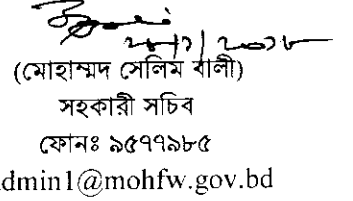 ২৮/১/২০১৮
(মোহাম্মদ সেলিম বালী)
সহকারী সচিব
ফোনঃ ৯৫৭৭৯৮৫
dmin1@mohfw.gov.bd